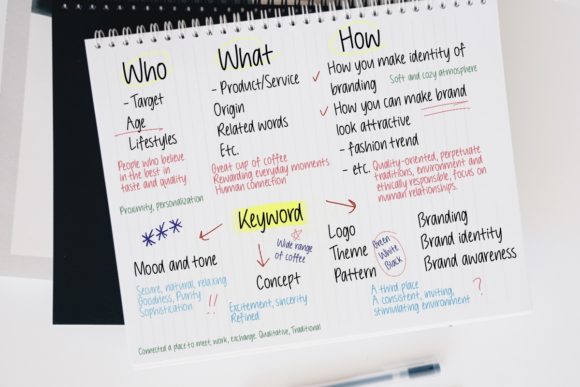 Who
- Target
Age
Lifestyles
People who believe
in the best in
taste and quality
Proximity, personalization
What
- Product/Service
Origin
Related words
Etc.
Great cup of coffee
Rewarding everyday moments
Human connection
How
How you make identity of
branding
Soft and cozy atmosphere
How you can make brand
look attractive
- fashion trend
- etc.
Quality-oriented, perpetuate
traditions, environment and
ethically responsible, focus on
human relationships.
Keyword
***
Mood and tone
Secure, natural, relaxing
Goodness, Purity
Sophistication
!!
Wide range
of coffee
Concept
Excitement, sincerity
Refined
Logo
Theme
Pattern
Green
White
Black
Branding
Brand identity
Brand awareness
A third place
A consistent, inviting,
stimulating environment
?
Connected a place to meet, work, exchange. Qualitative, Traditional